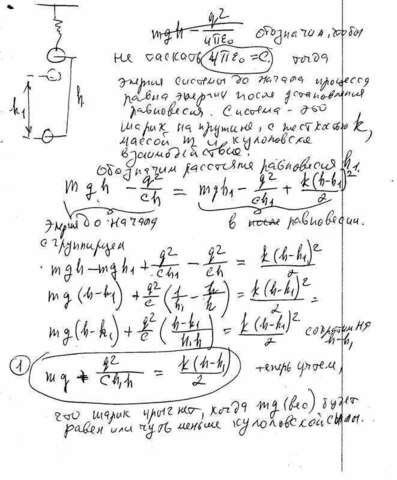 mgh - q²/4πε₀ обозначим, чтобы
не таскать 4πε₀ = C. тогда
энергия системы до начала процесса
равна энергии после установления
равновесия. Система - это
шарик на пружине, с жесткостью k,
массой m и кулоновское
взаимодействие.
обозначим расстояния равновесия h₁.
h₁ h
mgh - q²/ch = mgh₁ - q²/ch₁ + k(h-h₁)²/2
энергия до начала в после равновесии.
сгруппируем
mgh - mgh₁ + q²/ch₁ - q²/ch = k(h-h₁)²/2
mg(h-h₁) + q²/c (1/h₁ - 1/h) = k(h-h₁)²/2 =
mg(h-h₁) + q²/c (h-h₁/h₁h) = k(h-h₁)²/2 сократим на h-h₁
① mg + q²/ch₁h = k(h-h₁)/2 теперь учтем,
что шарик прыгнет, когда mg (вес) будет
равен или чуть меньше кулоновской силы.